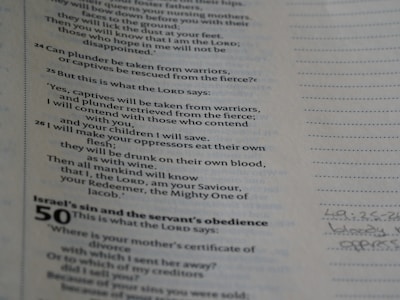 foster fathers,
their queens your nursing mothers.
will bow down before you with their
faces to the ground;
they will lick the dust at your feet.
Then you will know that I am the LORD;
those who hope in me will not be
disappointed.'
24 Can plunder be taken from warriors,
or captives be rescued from the fierce?
25 But this is what the LORD says:
'Yes, captives will be taken from warriors,
and plunder retrieved from the fierce;
I will contend with those who contend
with you,
and your children I will save.
26 I will make your oppressors eat their own
flesh;
they will be drunk on their own blood,
as with wine.
Then all mankind will know
that I, the LORD, am your Saviour,
your Redeemer, the Mighty One of
Jacob.'
Israel's sin and the servant's obedience
50 This is what the LORD says:
'Where is your mother's certificate of
divorce
with which I sent her away?
Or to which of my creditors
did I sell you?
Because of your sins you were sold;
because of your
49:25-2
bloody
oppress